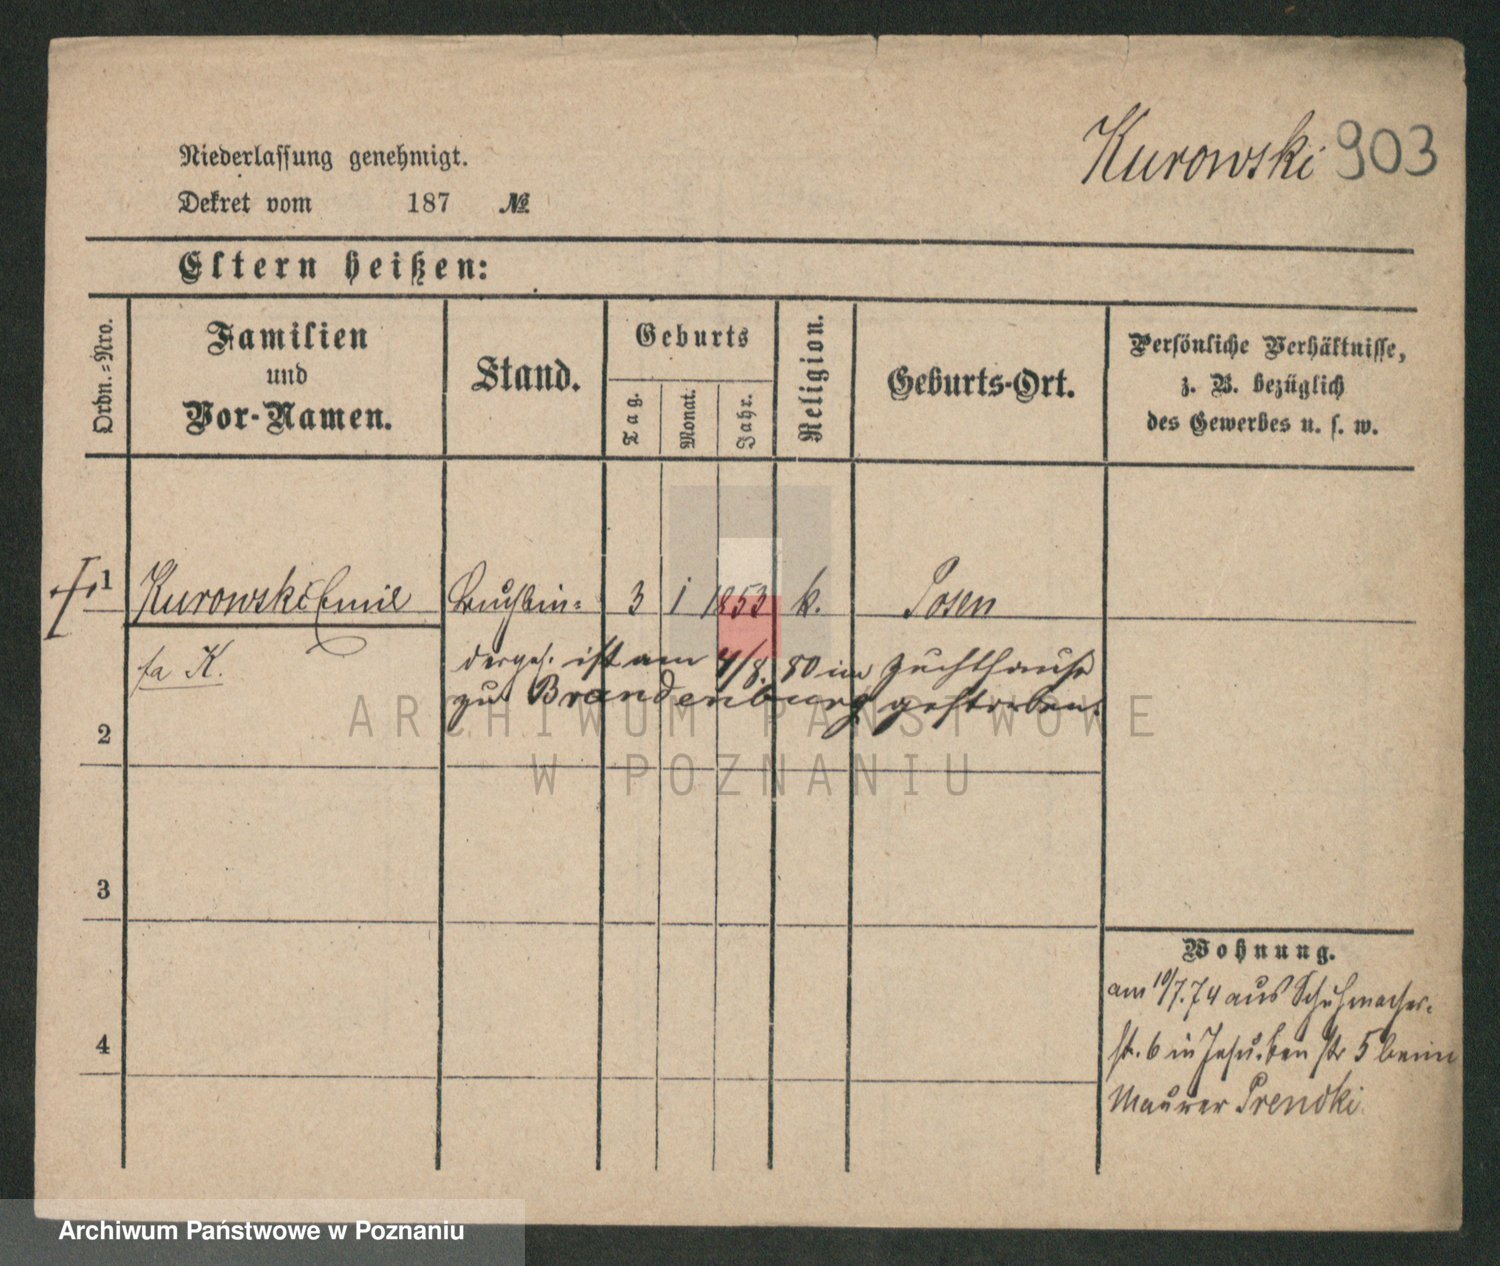 Kurowski 903
Niederlassung genehmigt.
Dekret vom 187 №
Eltern heißen:
Ordn.-Nro.
Familien
und
Vor-Namen.
Stand.
Geburts
Tag.
Monat.
Jahr.
Religion.
Geburts-Ort.
Persönliche Verhältnisse,
z. B. bezüglich
des Gewerbes u. s. w.
1 Kurowski Emil Buchbin= 3 1 1853 k. Posen
fa K.
dergeh. ist am 4/8. 80 im Zuchthause
zu Brandenburg gestorben.
2
3
4
Wohnung.
am 10/7.74 aus Schuhmacher-
st. 6 in str 5 beim
Maurer Prendki
ARCHIWUM PAŃSTWOWE
W POZNANIU
Archiwum Państwowe w Poznaniu